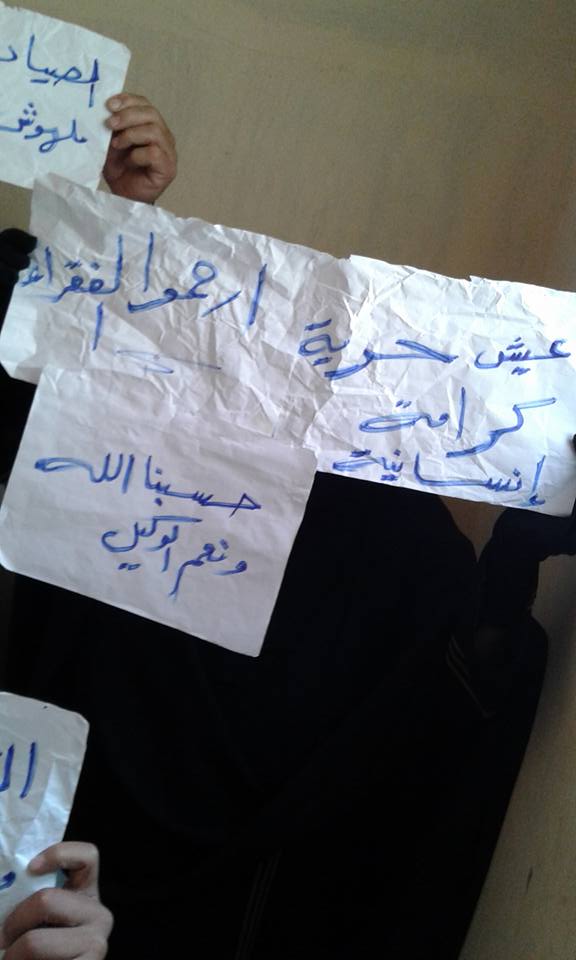 الصياد
ملهوش
ارحموا الفقراء
عيش حرية
كرامة
إنسانية
حسبنا الله
ونعم الوكيل